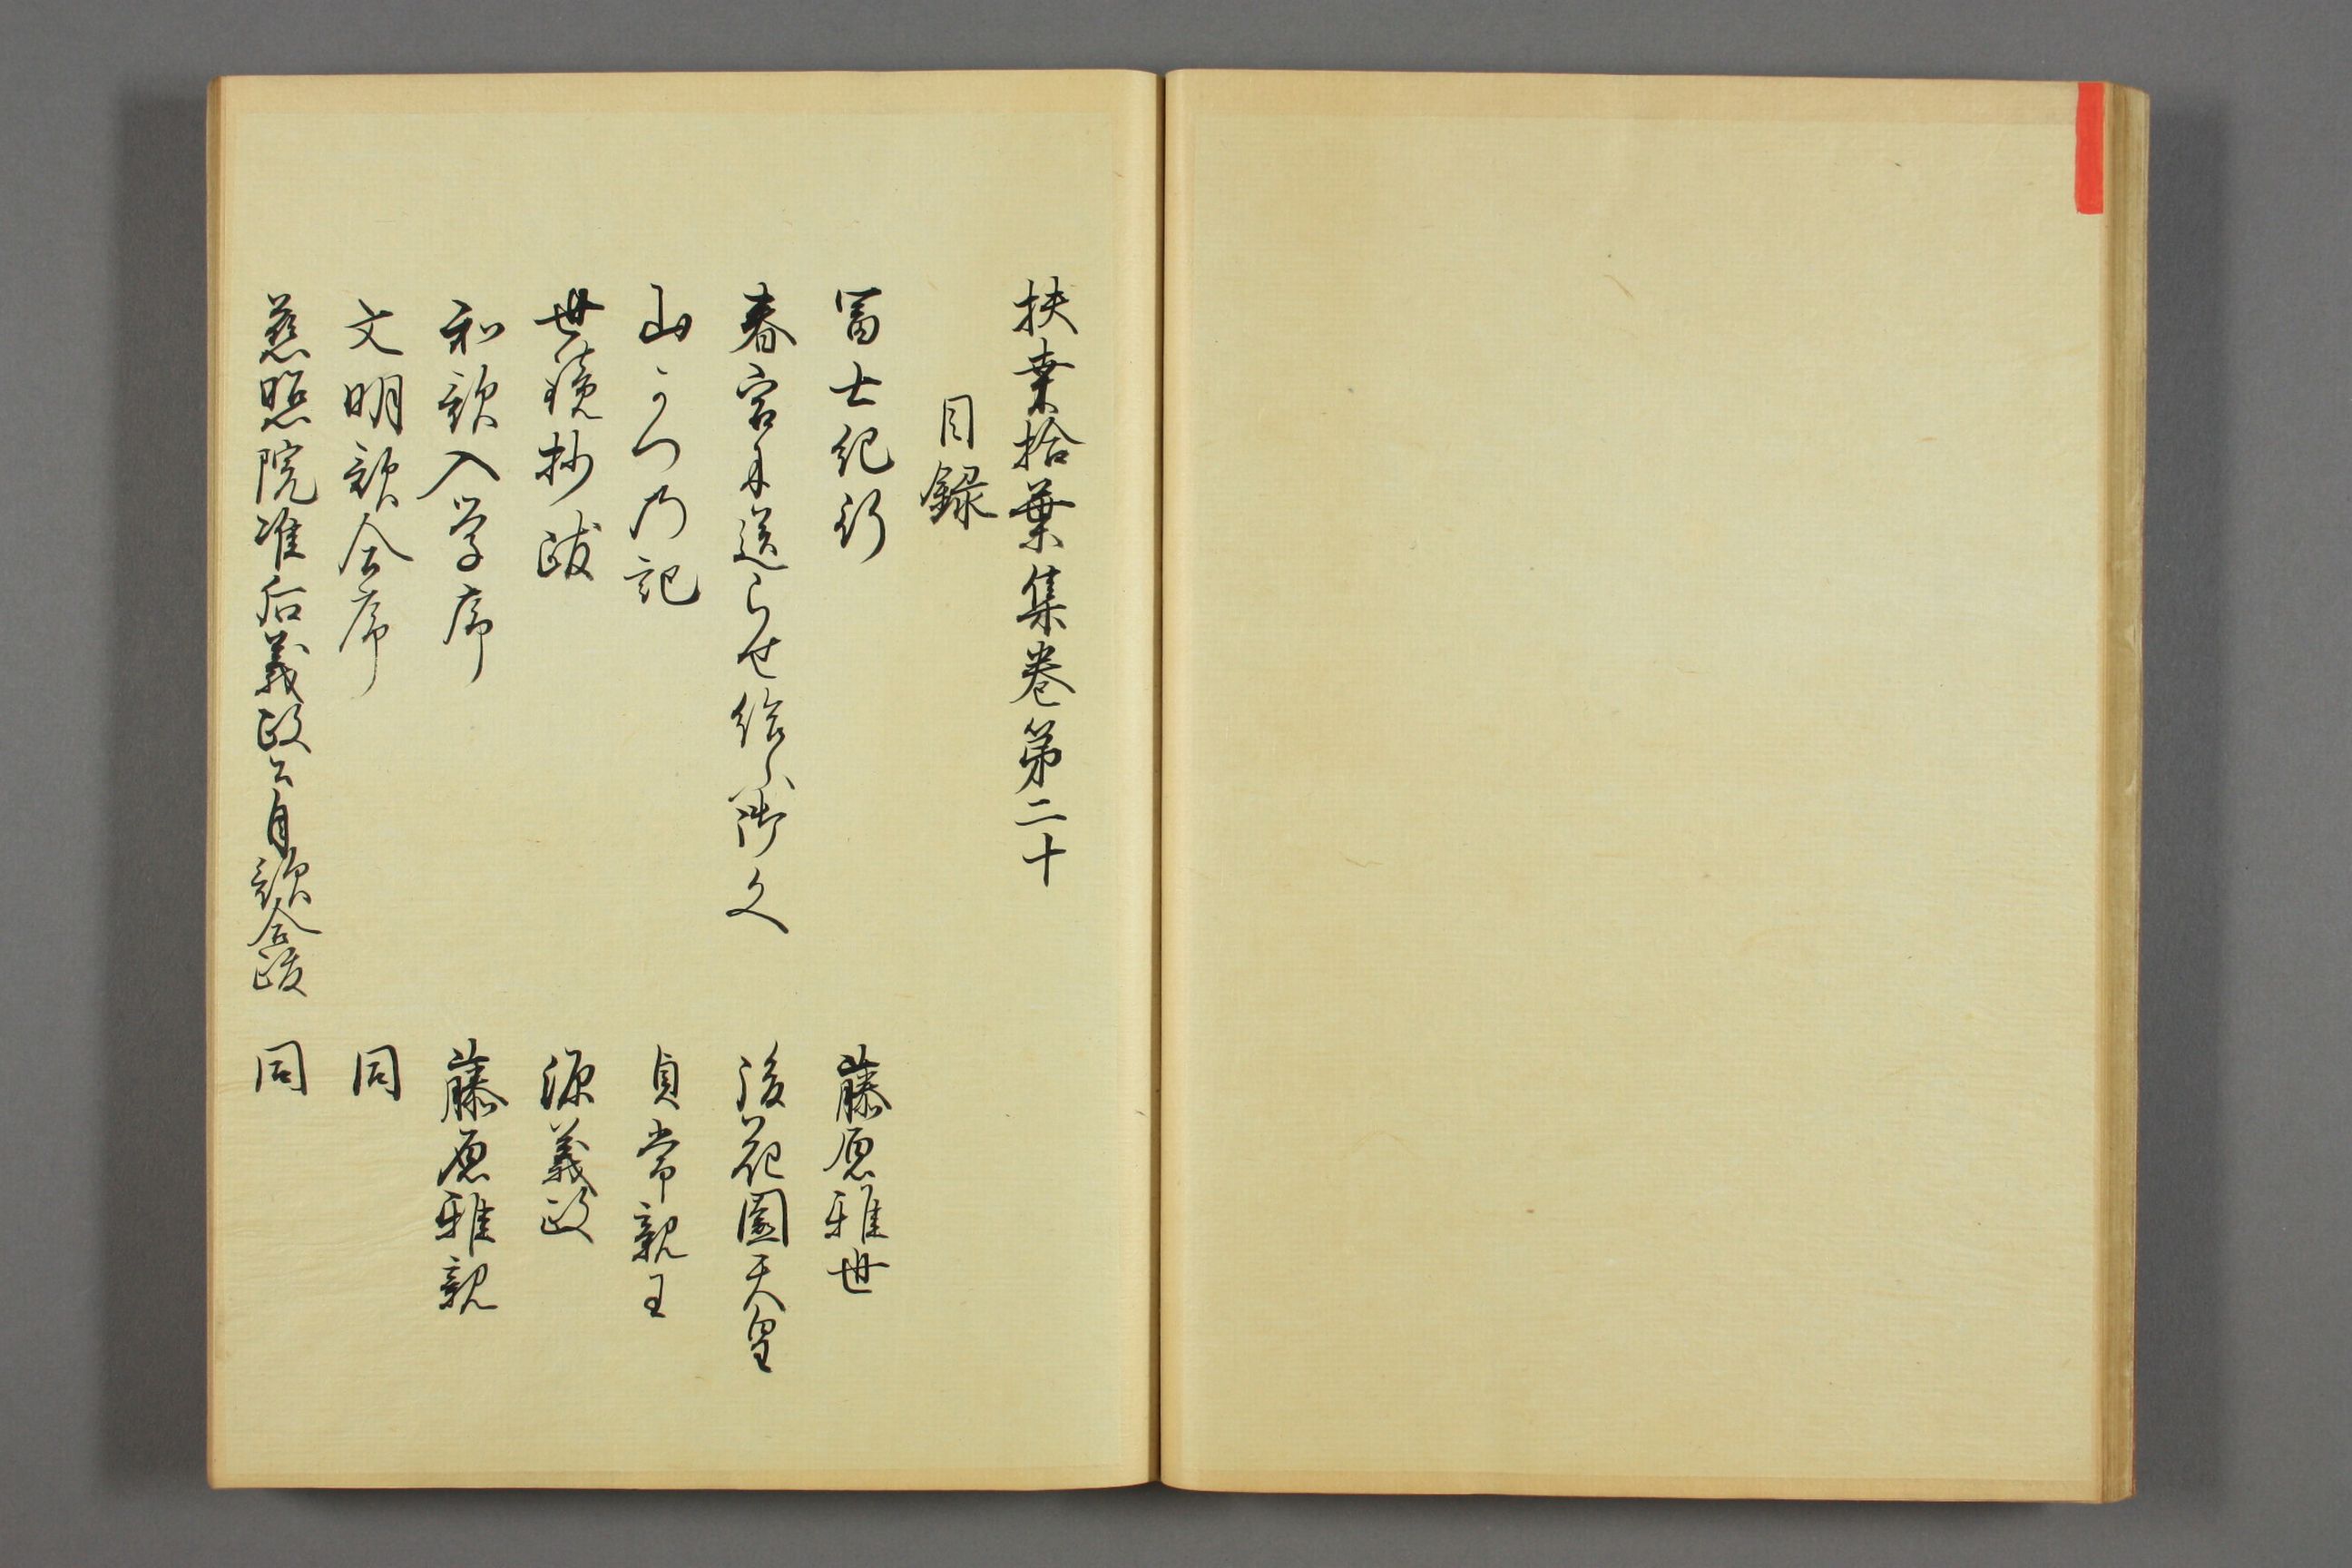 扶桑拾葉集巻第二十
目録
冨士紀行 藤原雅世
春宮に送らせ給ふ御文 後花園天皇
山かつの記 貞常親王
世鏡抄跋 源義政
和歌入学序 藤原雅親
文明歌合序 同
慈照院准后義政公自歌合跋 同